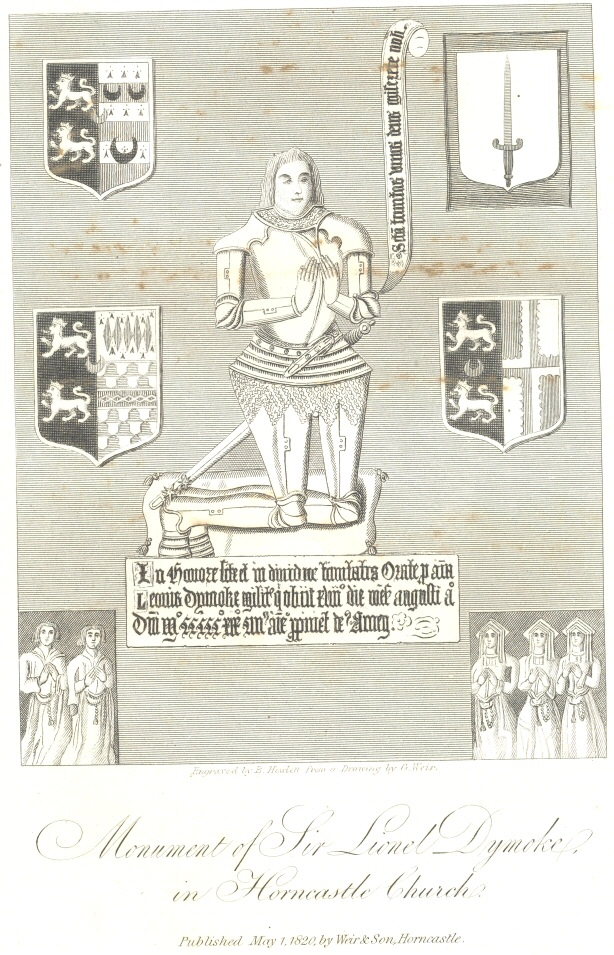 Sctā trinitas unus deus miserere nob.
In Honore scē et individue trinitatis Orate p aīa
Leonis Dymoke milit' q obiit xvii die mēs augusti aº
Dnī Mº xº
Engraved by B. Howlett from a Drawing by G. Weir.
Monument of Sir Lionel Dymoke,
in Horncastle Church.
Published May 1, 1820, by Weir & Son, Horncastle.